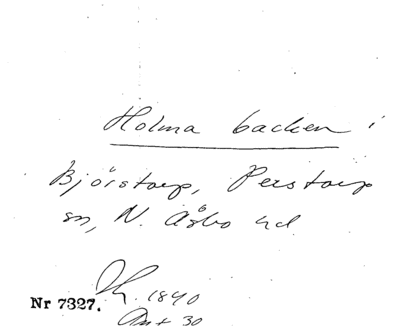 Holma backen i
Björstorp, Perstorp
sn, N. Åsbo hd
1840
Nr 7327.
30